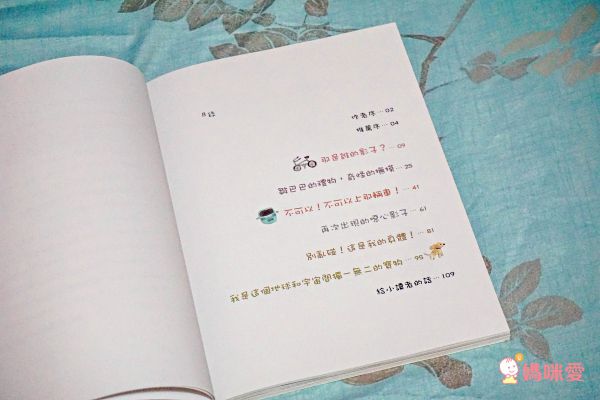 目錄
作者序… 02
推薦序… 04
那是誰的影子？… 09
髒巴巴的禮物，奇怪的擁抱… 25
不可以！不可以上那輛車！… 41
再次出現的噁心影子… 61
別亂碰！這是我的身體！… 81
我是這個地球和宇宙間獨一無二的寶物… 95
給小讀者的話… 109
媽咪愛